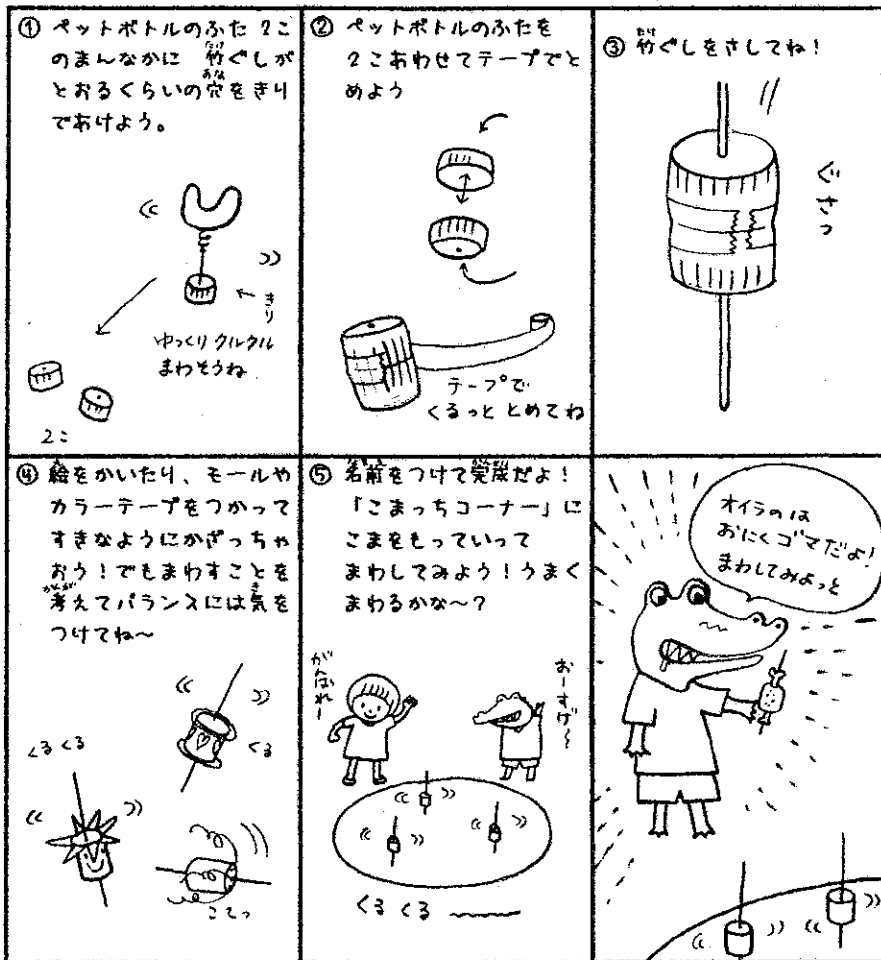 ① ペットボトルのふた 2こ
のまんなかに 竹ぐしが
とおるくらいの穴をきり
であけよう。
きり
ゆっくりクルクル
まわそうね
2こ
② ペットボトルのふたを
2こあわせてテープでと
めよう
テープで
くるっと とめてね
③ 竹ぐしをさしてね!
ぐさっ
④ 絵をかいたり、モールや
カラーテープをつかって
すきなようにかざっちゃ
おう!でもまわすことを
考えてバランスには気を
つけてね〜
くる
くるくる
こてっ
⑤ 名前をつけて完成だよ!
「こまっちコーナー」に
こまをもっていって
まわしてみよう!うまく
まわるかな〜?
がんばれー
おーすげ〜
くるくる
オイラのは
おにくゴマだよ!
まわしてみよっと